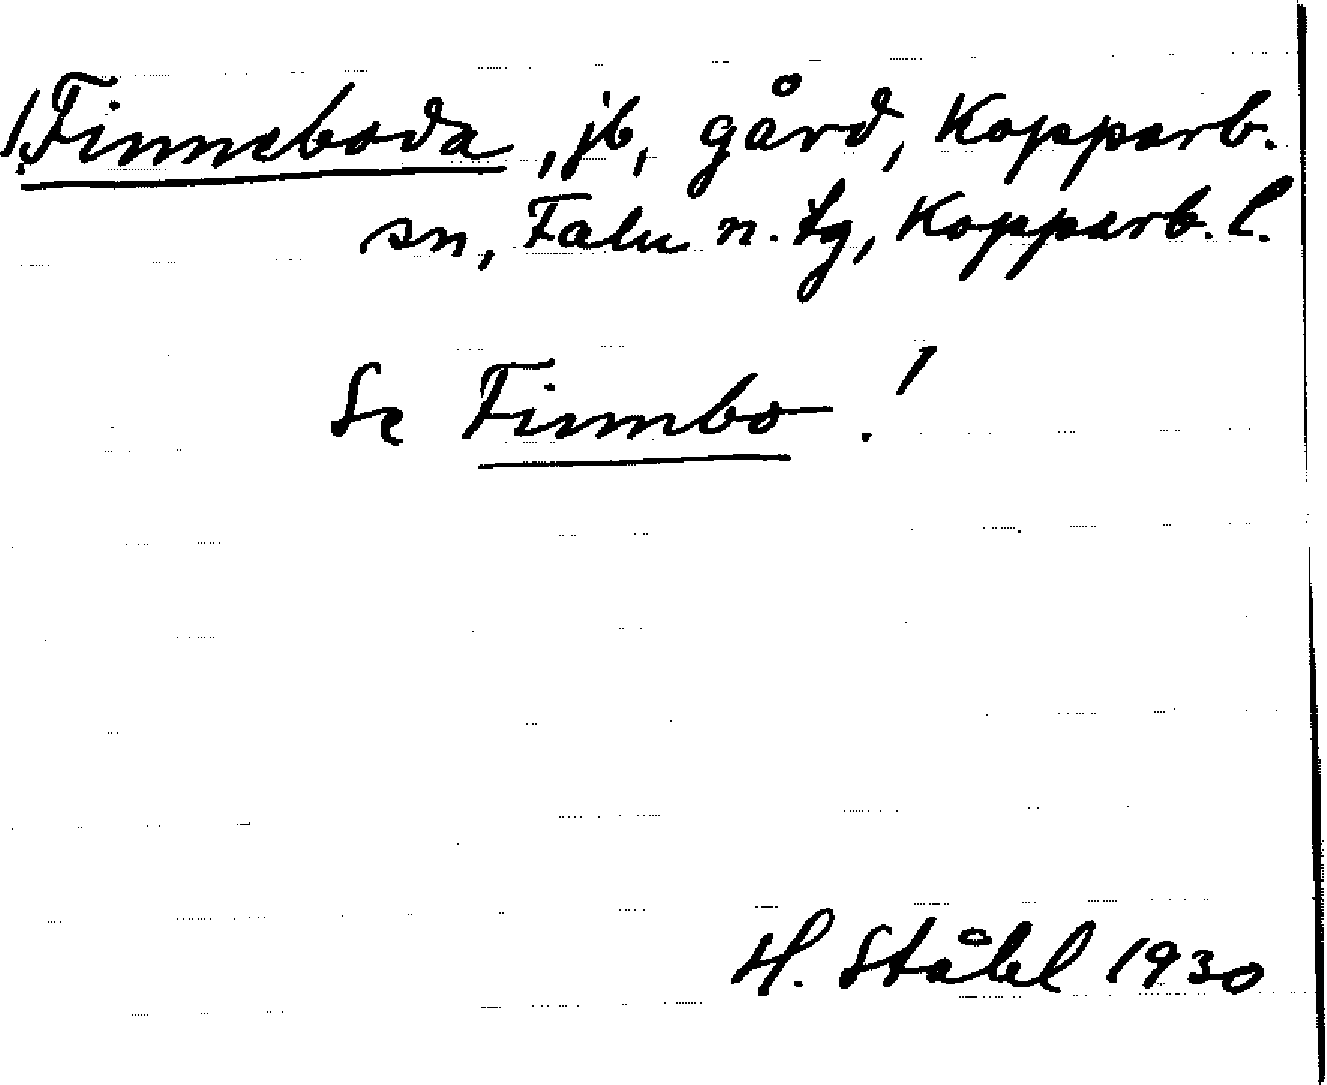 !Finneboda, jb, gård, Kopparb.
sn, Falu n. tg, Kopparb. l.
Se Finnbo.!
H. Ståhl 1930